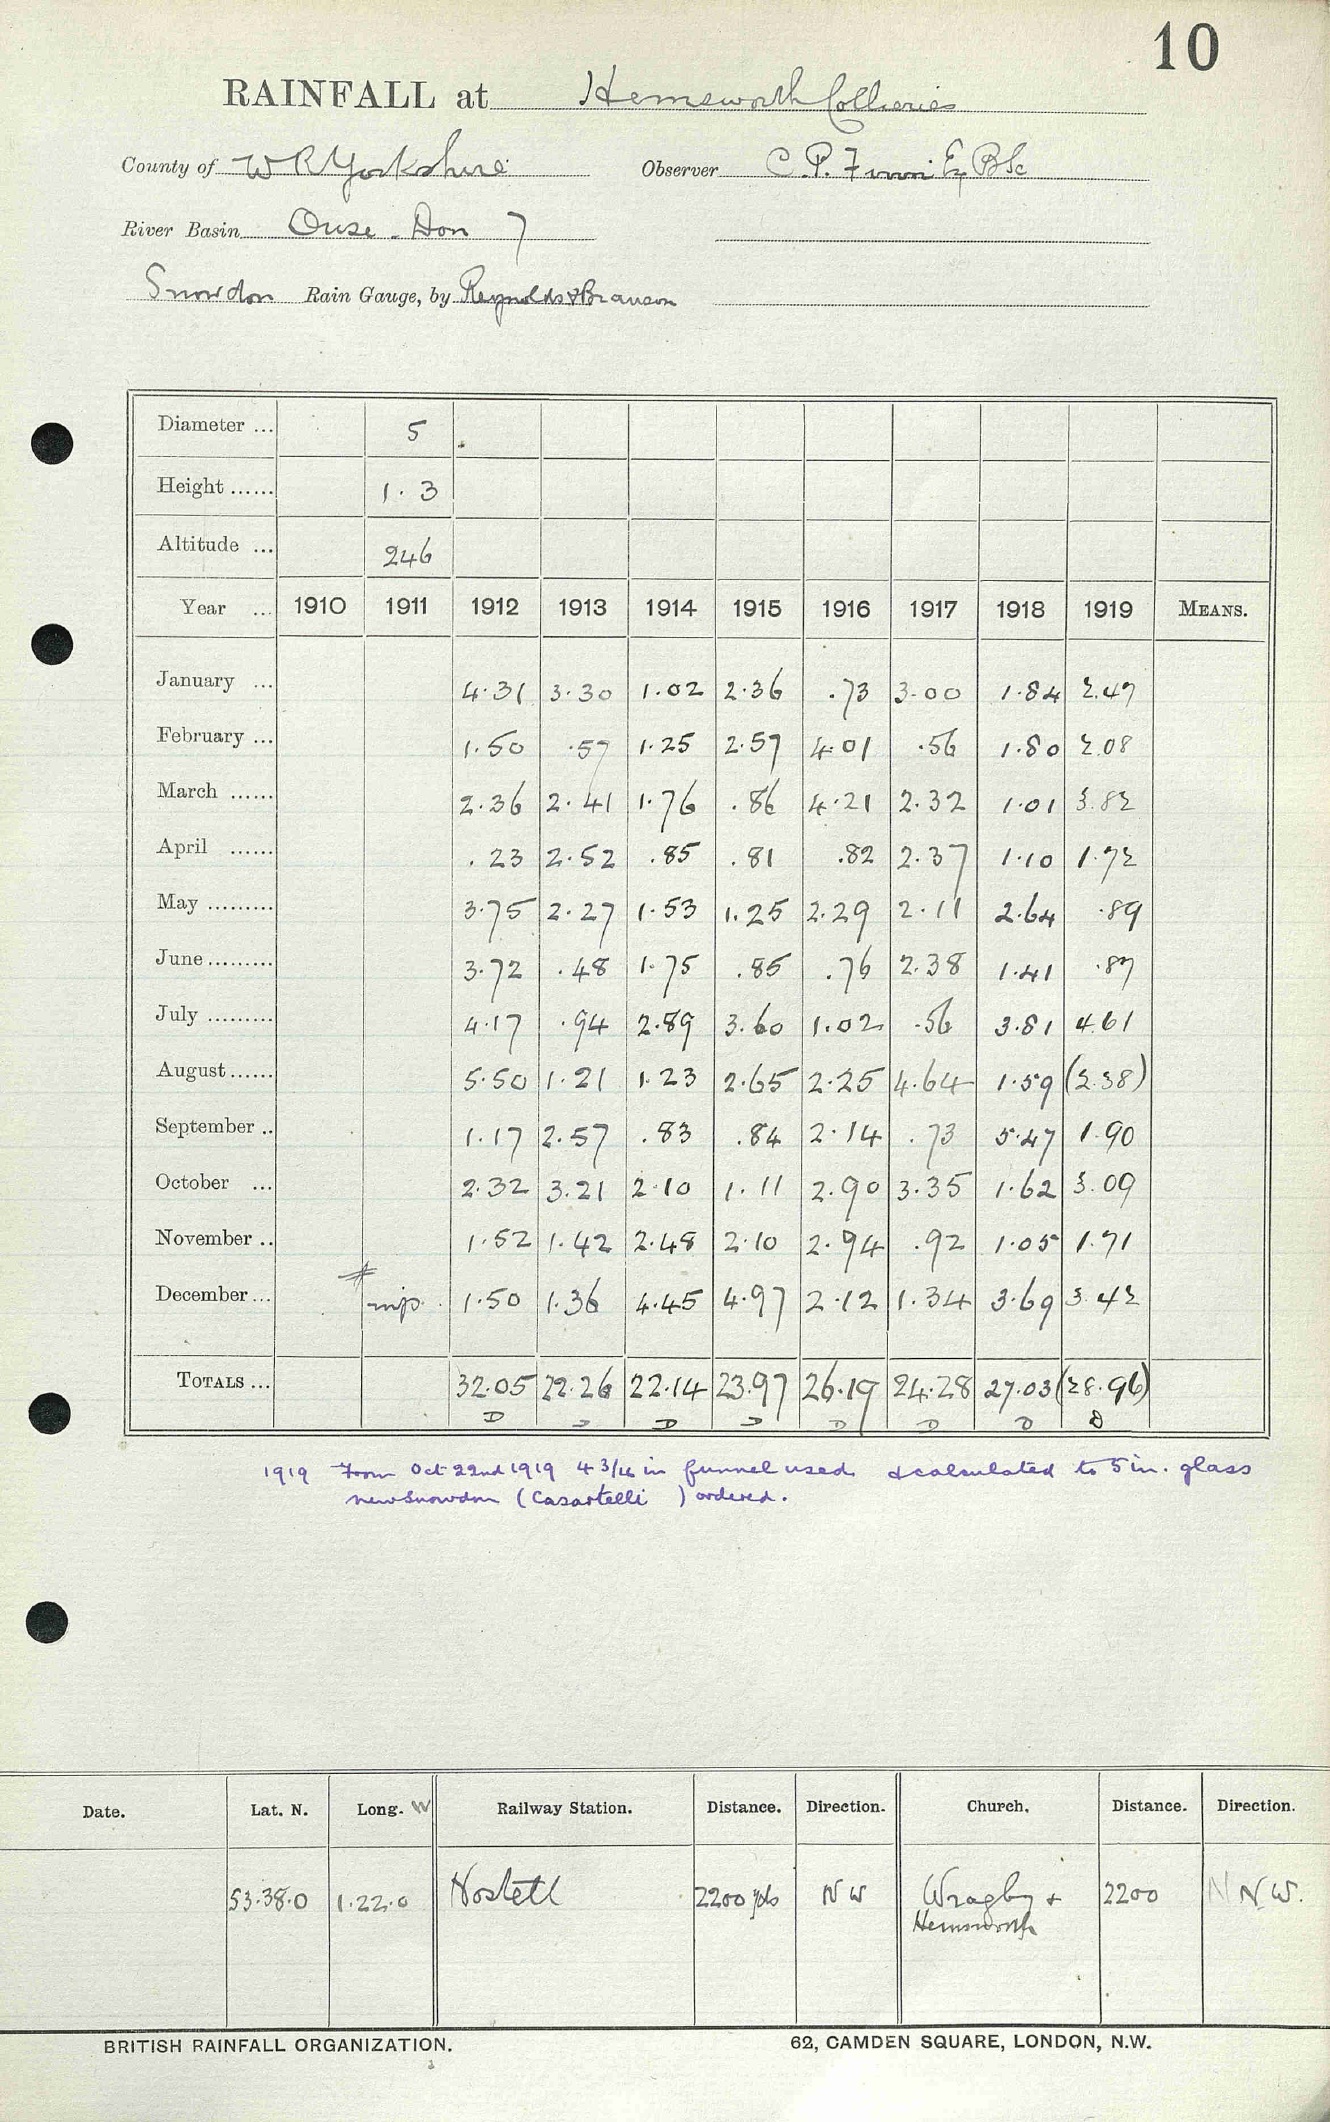 10
RAINFALL at Hemsworth Collieries
County of W R Yorkshire Observer C. P. Esq BSc
River Basin Ouse - Don 7
Snowdon Rain Gauge, by Reynolds & Branson
Diameter ... 5
Height ...... 1.3
Altitude ... 246
Year ... 1910 1911 1912 1913 1914 1915 1916 1917 1918 1919 MEANS.
January ... 4.31 3.30 1.02 2.36 .73 3.00 1.84 2.47
February ... 1.50 .57 1.25 2.57 4.01 .56 1.80 2.08
March ...... 2.36 2.41 1.76 .86 4.21 2.32 1.01 3.82
April ...... .23 2.52 .85 .81 .82 2.37 1.10 1.72
May ......... 3.75 2.27 1.53 1.25 2.29 2.11 2.64 .89
June ......... 3.72 .48 1.75 .85 .76 2.38 1.41 .87
July ......... 4.17 .94 2.89 3.60 1.02 .56 3.81 4.61
August ...... 5.50 1.21 1.23 2.65 2.25 4.64 1.59 (2.38)
September .. 1.17 2.57 .83 .84 2.14 .73 5.47 1.90
October ... 2.32 3.21 2.10 1.11 2.90 3.35 1.62 3.09
November .. 1.52 1.42 2.48 2.10 2.94 .92 1.05 1.71
December ... 1.50 1.36 4.45 4.97 2.12 1.34 3.69 3.42
TOTALS ... 32.05 22.26 22.14 23.97 26.19 24.28 27.03 (28.96)
D D D D D D D D
1919 From Oct 22nd 1919 4 3/16 in funnel used & calculated to 5 in. glass
new Snowdon (Casartelli ) ordered.
Date. Lat. N. Long. W Railway Station. Distance. Direction. Church. Distance. Direction.
53.38.0 1.22.0 Nostell 2200 yds NW Wragby & 2200 N N.W.
Hemsworth
BRITISH RAINFALL ORGANIZATION. 62, CAMDEN SQUARE, LONDON, N.W.